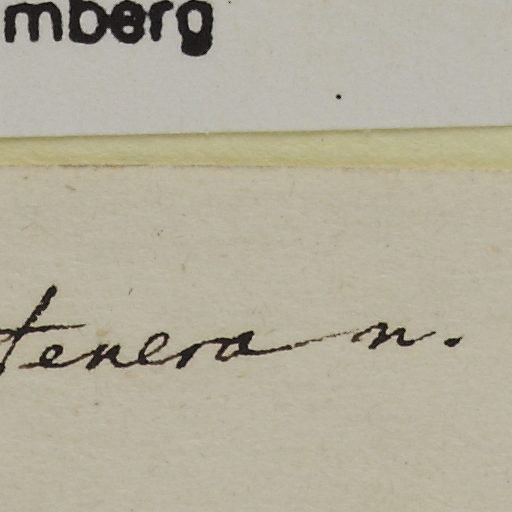 mberg
tenera n.